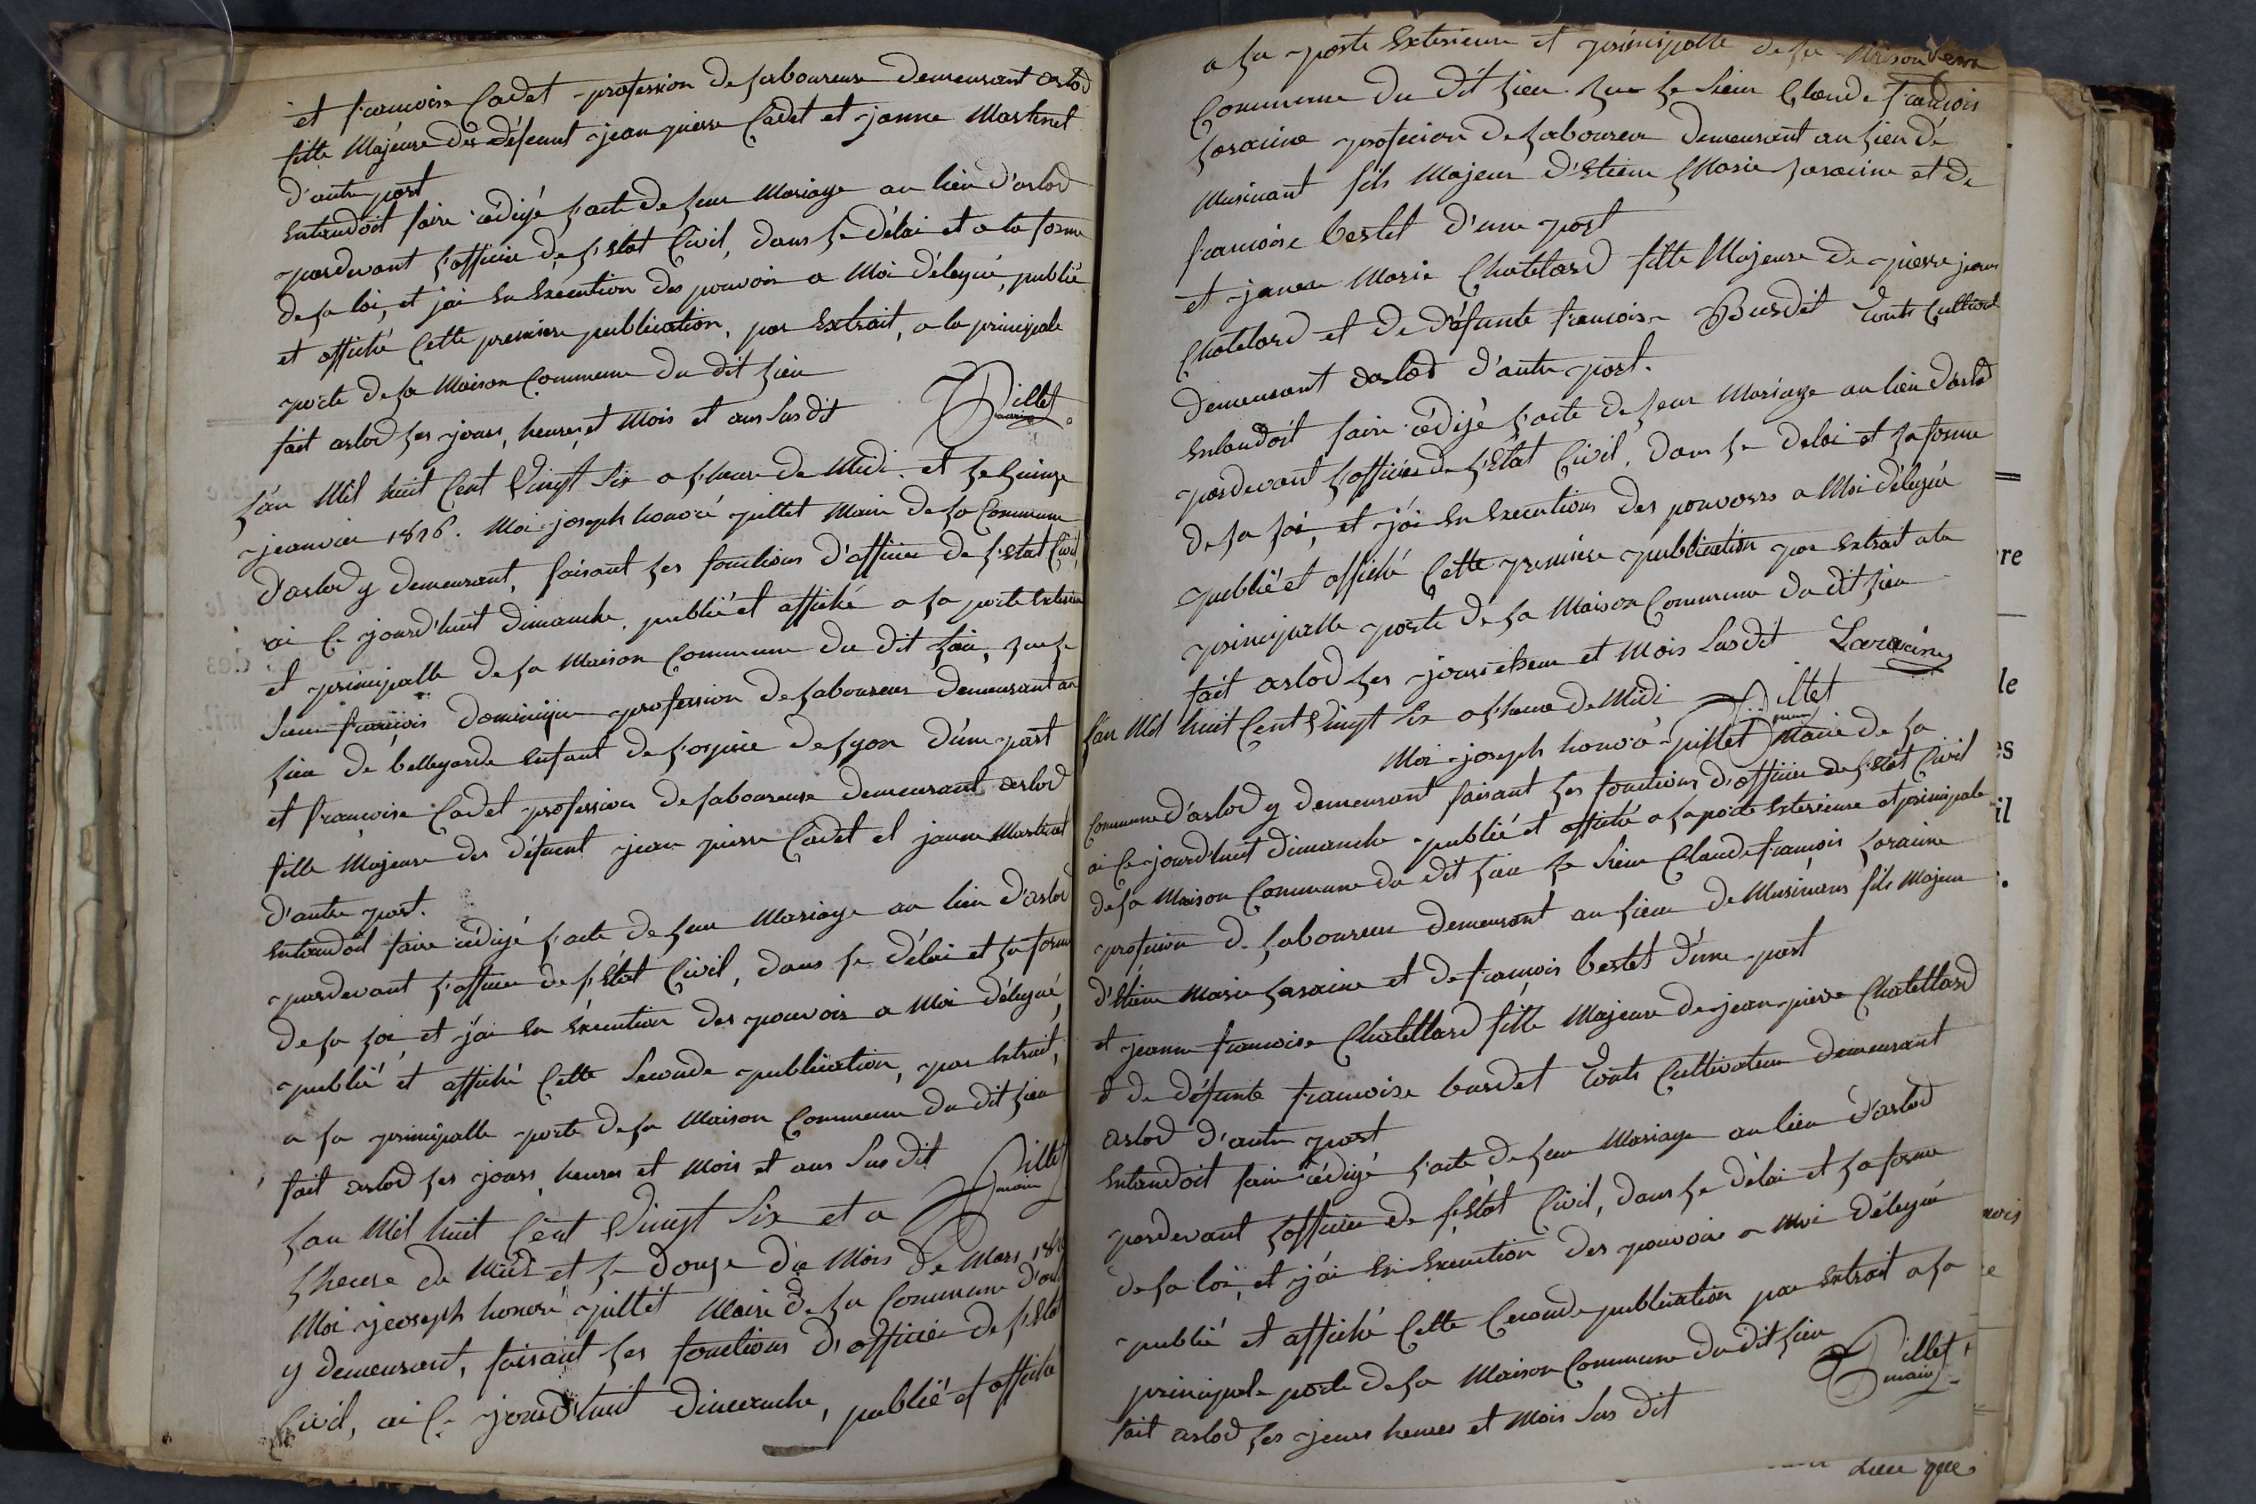 et francoise Cadet profession de laboureuse demeurant arlod
fille Majeure des défeunt jean pierre Cadet et janne Martinet
d'autre part
Entandoit faire rédigé l'acte de leur Mariage au lieu d'arlod
pardevant l'officier de l'Etat Civil, dans le délai et a la forme
de la loi, et jai en Execution des pouvoir a Moi délegué, publié
et affiché Cette premiere publication, par Extrait, a la principale
porte de la Maison Commune du dit lieu
fait arlod les jours, heures, et Mois et ans Susdit
Pillet
maire
L'an Mil huit Cent Vingt Six a l'heure de Midi et le
jeanvier 1826. Moi joseph honoré pillet Maire de la Commune
d'arlod y demeurant, faisant les fonctions d'officier de l'Etat Civil
ai Ce jourd'huit dimanche, publié et affiché a la porte Exterieure
et principalle de la Maison Commune du dit lieu, que le
Sieur françois dominique profession de laboureur demeurant au
lieu de bellegarde Enfant de l'ospice de lyon d'une part
et françoise Cadet profession de laboureuse demeurant arlod
fille Majeure des défeunt jean pierre Cadet et janne Martinet
d'autre part.
Entandoit faire rédigé l'acte de leur Mariage au lieu d'arlod
pardevant l'officier de l'Etat Civil, dans le délai et la forme
de la loi, et jai En Exécution des pouvoir a Moi délegué,
publié et affiché Cette Seconde publication, par Extrait,
a la principalle porte de la Maison Commune du dit lieu
fait arlod les jours, heures et Mois et ans Sus dit
Pillet
maire
L'an Mil huit Cent Vingt Six et a
l'heure de Midi et le douze du Mois de Mars
Moi jeoseph honoré pillet Maire de la Commune
y demeurant, faisant les fonctions d'officier de l'Etat
Civil, ai Ce jourd'huit dimanche, publié et affiché
a la porte Exterieure et principalle de la Maison
Commune du dit lieu que le Sieur Claude francois
laracine profesion de laboureur demeurant au lieu de
Musinant fils Majeur d'Etiene Marie laracine et de
francoise bertet d'une part
et janne Marie Chatelard fille Majeure de pierre jean
Chatelard et de défunte francoise Burdet touts
demeurant arlod d'autre part.
Entandoit faire rédigé l'acte de leur Mariage au lieu d'arlod
pardevant l'officier de l'Etat Civil, dans le delai et la forme
de la loi, et j'ai En Execution des pouvoirs a Moi délegué
publié et affiché Cette premiere publication par Extrait a la
principalle porte de la Maison Commune du dit lieu
fait arlod les jours et heure et Mois Susdit
Laracine
L'an Mil huit Cent Vingt Six a l'heure de Midi
Pillet
maire
Moi joseph honoré pillet Maire de la
Commune d'arlod y demeurant faisant les fonctions d'officier de l'Etat Civil
ai Ce jourd'huit dimanche publié et affiché a la porte Exterieure et principale
de la Maison Commune du dit lieu le Sieur Claude françois laracine
profesion de laboureur demeurant au lieu de Musinans fils Majeur
d'Etiene Marie laracine et de françois bertet d'une part
et jeanne francoise Chatellard fille Majeure de jean pierre Chatellard
et de défunte francoise burdet touts Cultivateur demeurant
arlod d'autre part
Entandoit faire rédigé l'acte de leur Mariage au lieu d'arlod
pardevant l'officier de l'Etat Civil, dans le délai et la forme
de la loi, et j'ai En Execution des pouvoirs a Moi délegué
publié et affiché Cette Seconde publication par Extrait a la
principale porte de la Maison Commune du dit lieu
fait arlod les jours heures et Mois Sus dit
Pillet
maire